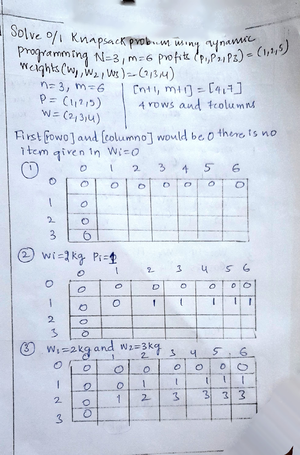 Solve 0/1 Knapsack problem using dynamic
programming N=3, m=6 profits (P1,P2,P3)=(1,2,5)
weights(W1,W2,W3)=(2,3,4)
n=3, m=6 [n+1, m+1] = [4,7]
P = (1,2,5) 4 rows and 7columns
W = (2,3,4)
First [row0] and [column0] would be 0 there is no
item given in Wi=0
① 0 1 2 3 4 5 6
0 0 0 0 0 0 0 0
1 0
2 0
3 0
② Wi=2kg Pi=1
0 1 2 3 4 5 6
0 0 0 0 0 0 0 0
1 0 0 1 1 1 1 1
2 0
3 0
③ W1=2kg and W2=3kg
0 1 2 3 4 5 6
0 0 0 0 0 0 0 0
1 0 0 1 1 1 1 1
2 0 1 2 3 3 3 3
3 0